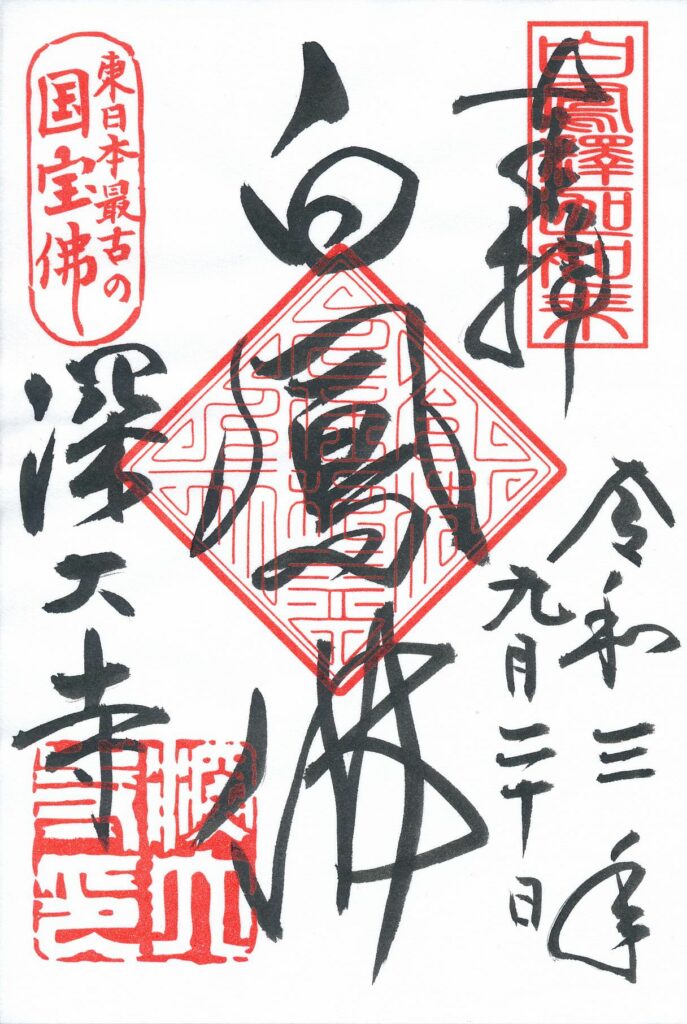 奉拝
白鳳釋迦如来
令和三年
九月二十日
白鳳佛
東日本最古の
国宝佛
深大寺
深大
寺印